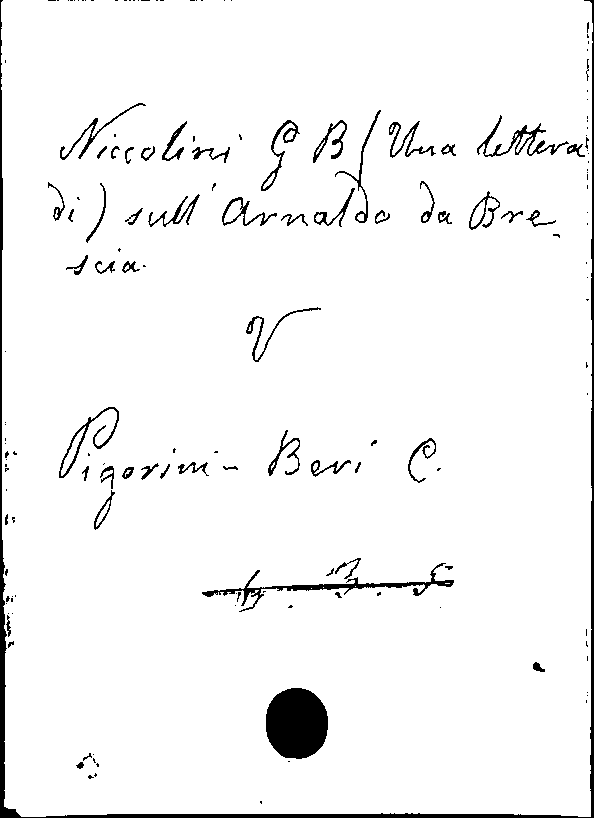 Niccolini G B (Una lettera
di) sull' Arnaldo da Bre-
scia.
V
Pigorini-Beri C.